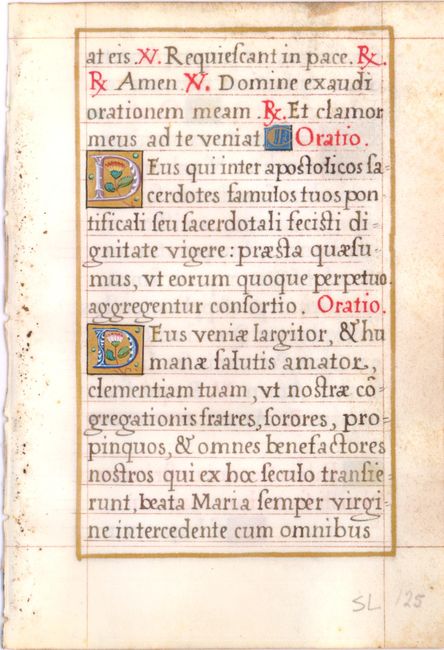 at eis. ℣. Requieſcant in pace. ℟.
℟ Amen. ℣. Domine exaudi
orationem meam. ℟. Et clamor
meus ad te veniat. Oratio.
DEus qui inter apostolicos ſa-
cerdotes famulos tuos pon
tificali ſeu ſacerdotali feciſti di-
gnitate vigere: præſta quæſu-
mus, vt eorum quoque perpetuo
aggregentur conſortio. Oratio.
DEus veniæ largitor, & hu
manæ ſalutis amator,
clementiam tuam, vt noſtræ cō-
gregationis fratres, ſorores, pro-
pinquos, & omnes benefactores
noſtros qui ex hoc ſeculo tranſie-
runt, beata Maria ſemper virgi-
ne intercedente cum omnibus
SL 125